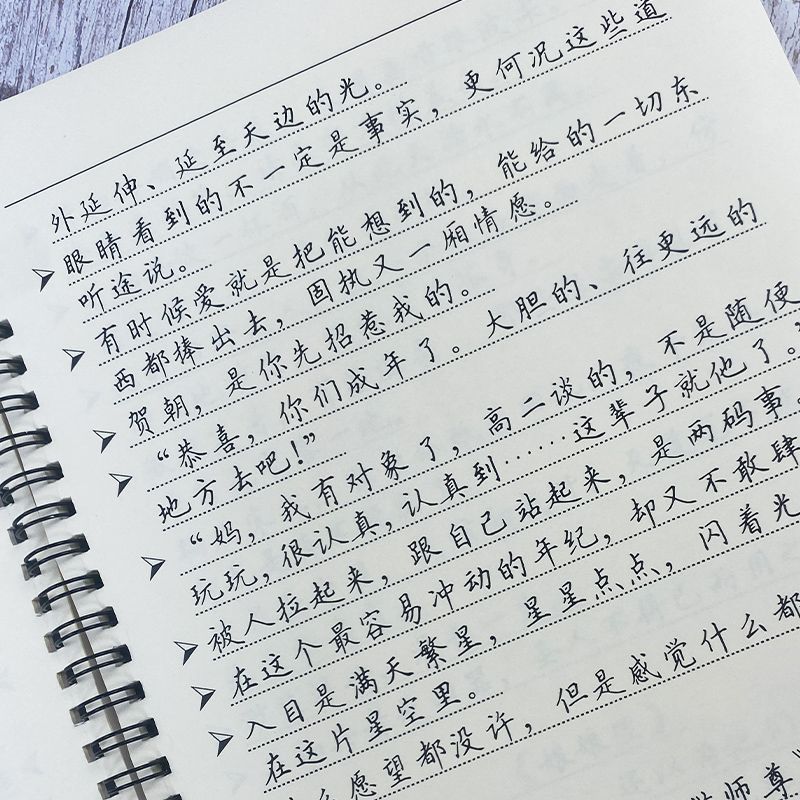 外延伸、延至天边的光。
眼睛看到的不一定是事实，更何况这些道
听途说。
有时候爱就是把能想到的，能给的一切东
西都捧出去，固执又一厢情愿。
贺朝，是你先招惹我的。
“恭喜，你们成年了。大胆的、往更远的
地方去吧！”
“妈，我有对象了，高二谈的，不是随便
玩玩，很认真，认真到……这辈子就他了。”
被人拉起来，跟自己站起来，是两码事。
在这个最容易冲动的年纪，却又不敢肆
入目是满天繁星，星星点点，闪着光
在这片星空里。
愿望都没许，但是感觉什么都
师尊